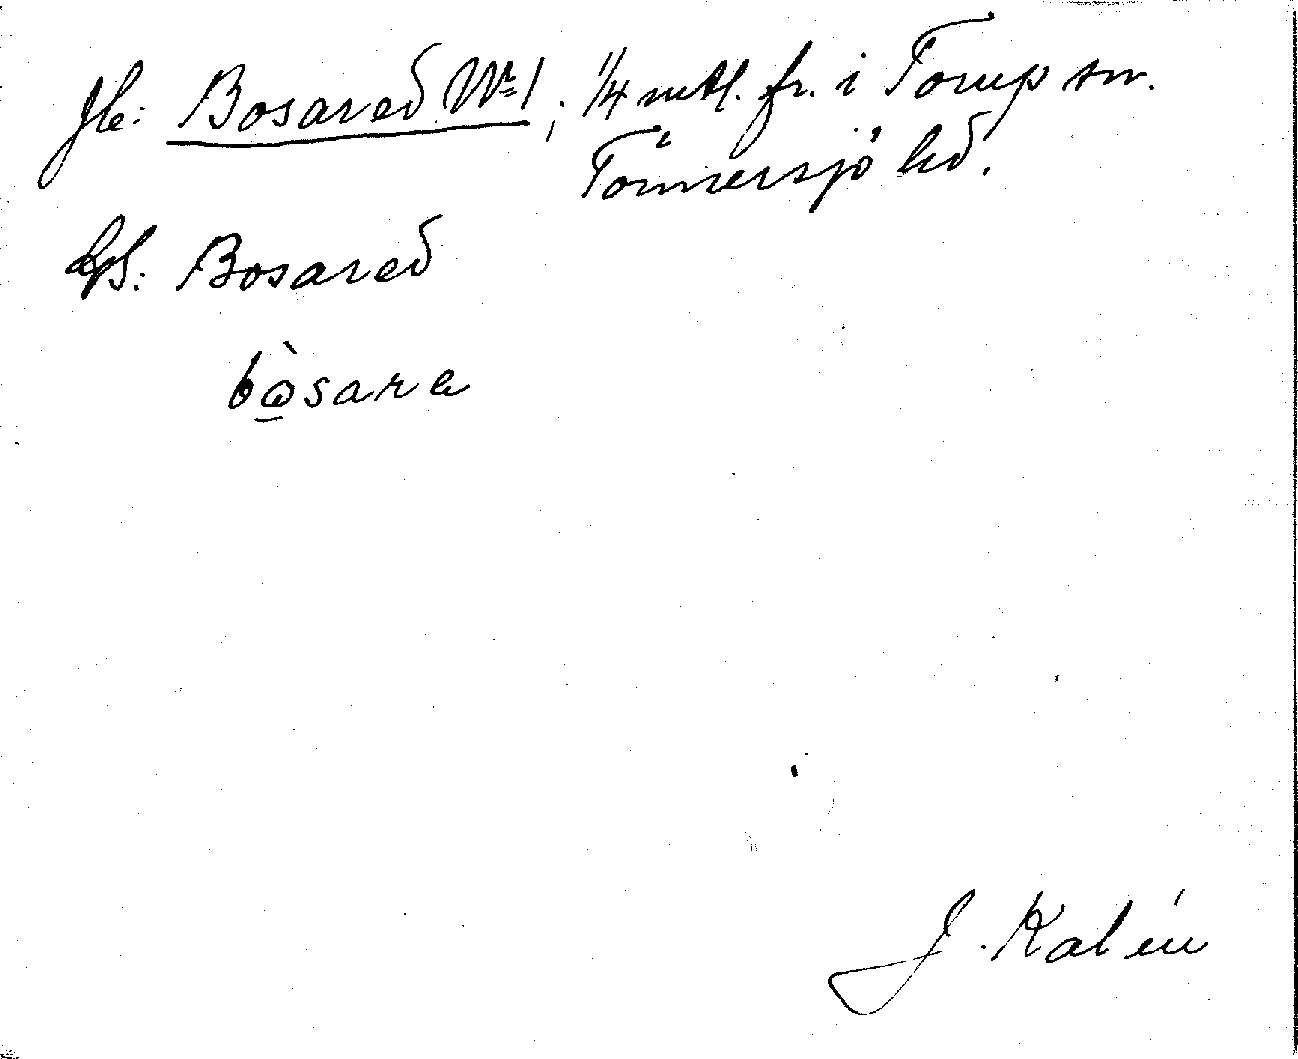 Jb: Bosared Nr 1, 1/4 mtl. fr. i Torup sn.
Tönnersjö hd.
Bosared
bò̱sare
J. Kalén